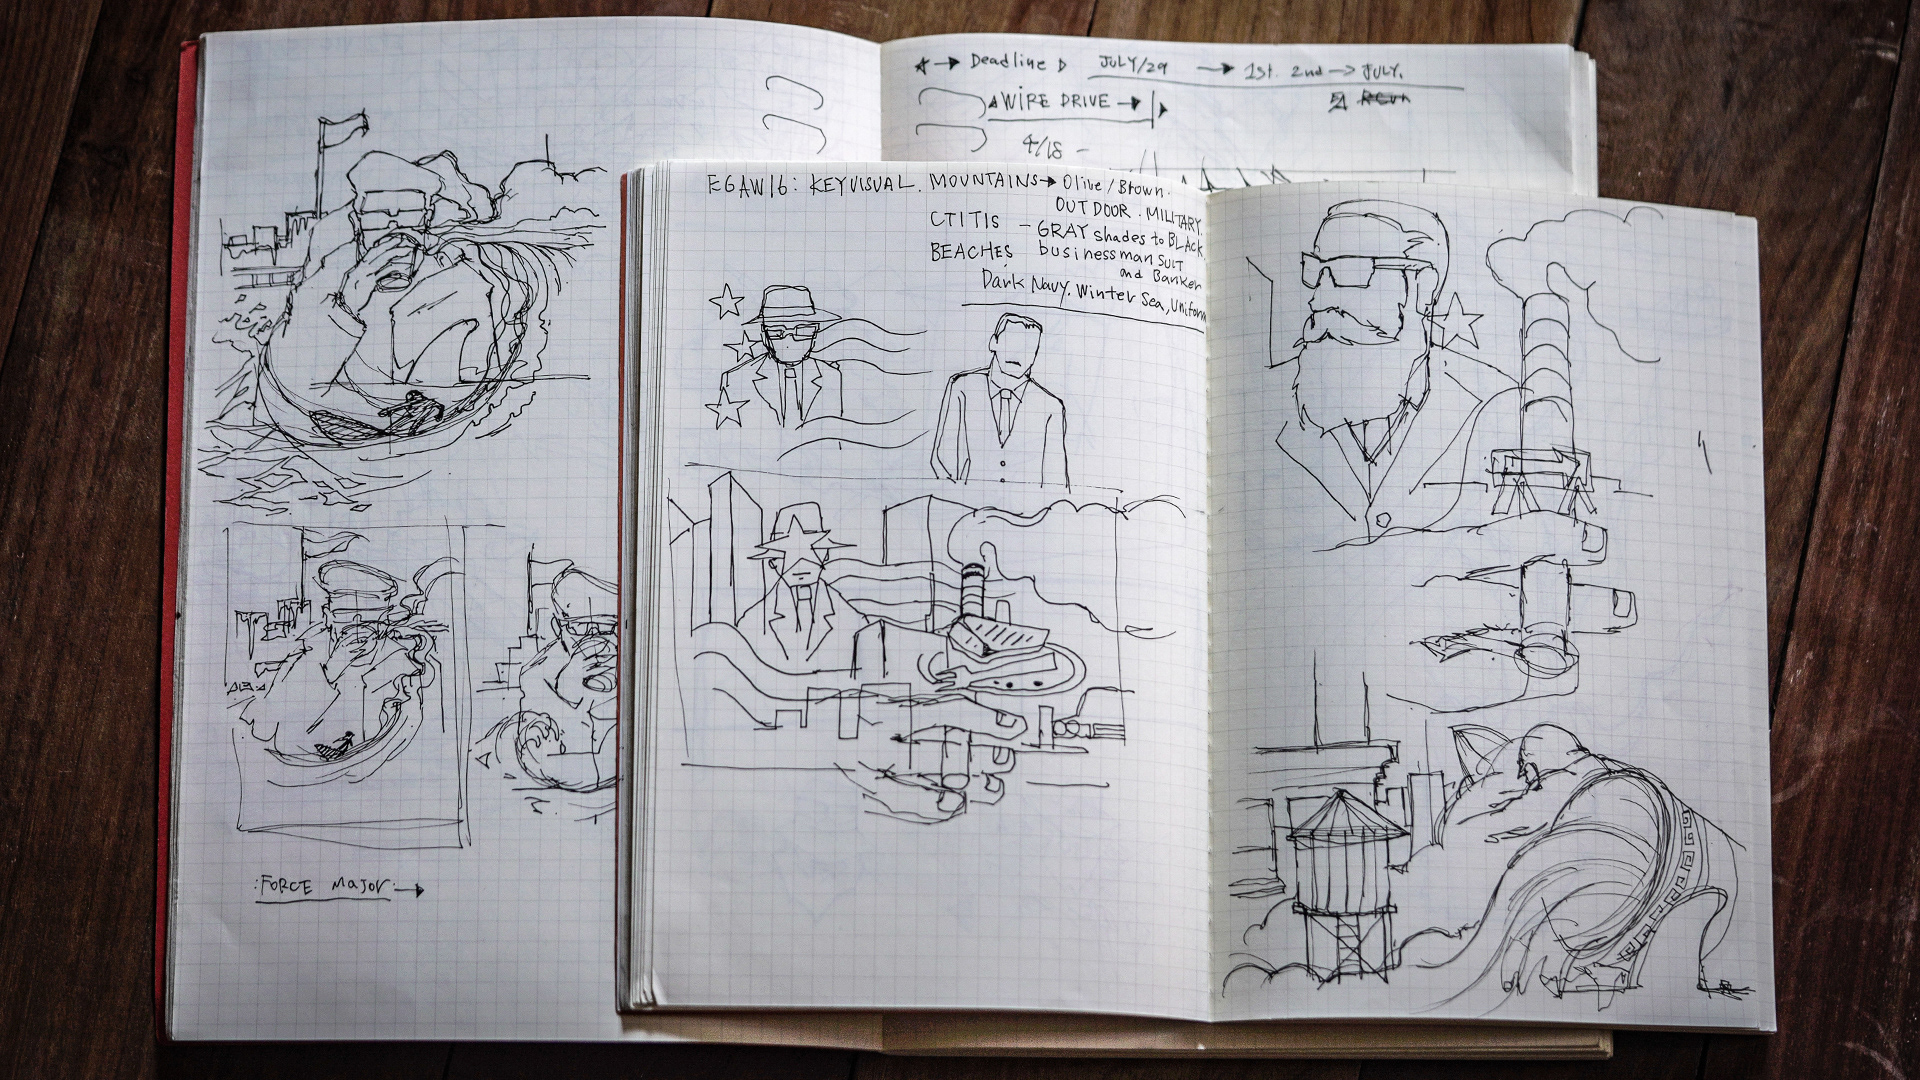 ★→ Deadline ▷ JULY/29 → 1st. 2nd → JULY.
WIRE DRIVE →
4/18 -
EGAW16: KEYVISUAL. MOUNTAINS → Olive/Brown.
OUTDOOR. MILITARY.
CTITIS - GRAY shades to BLACK
BEACHES businessman SUIT
and Banker
Dark Navy. Winter Sea, Uniform
:FORCE MAJOR: →